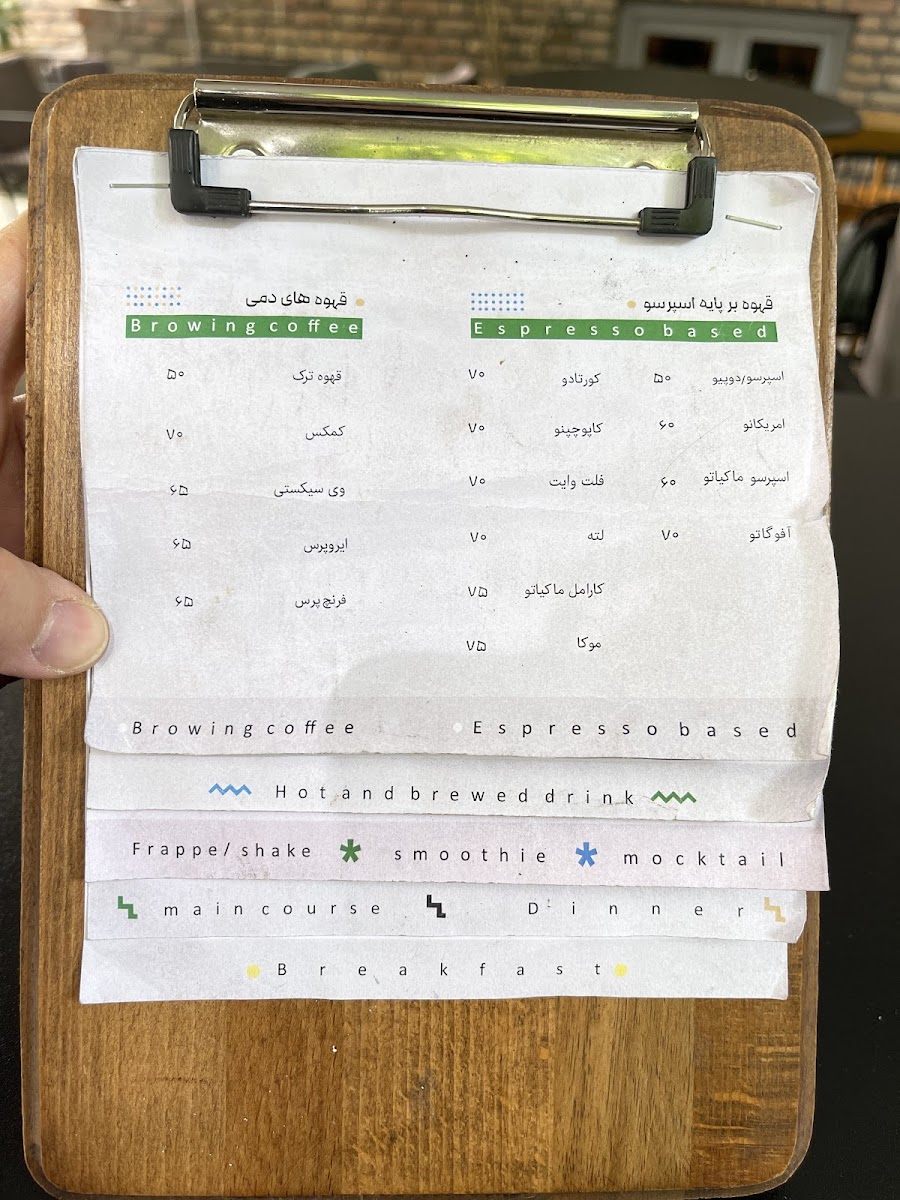 قهوه بر پایه اسپرسو
Espresso based
اسپرسو/دوپیو ۵۰
امریکانو ۶۰
اسپرسو ماکیاتو ۶۰
آفوگاتو ۷۰
کورتادو ۷۰
کاپوچینو ۷۰
فلت وایت ۷۰
لته ۷۰
کارامل ماکیاتو ۷۵
موکا ۷۵
قهوه های دمی
Browing coffee
قهوه ترک ۵۰
کمکس ۷۰
وی سیکستی ۶۵
ایروپرس ۶۵
فرنچ پرس ۶۵
Browing coffee Espresso based
Hot and brewed drink
Frappe/ shake * smoothie * mocktail
main course Dinner
Breakfast